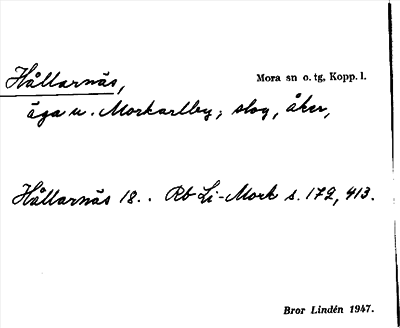 Hållarnäs,
Mora sn o. tg, Kopp. l.
äga u. Morkarlby; slog, åker,
Hållarnäs 18.. Rb Li-Mork s. 172, 413.
Bror Lindén 1947.